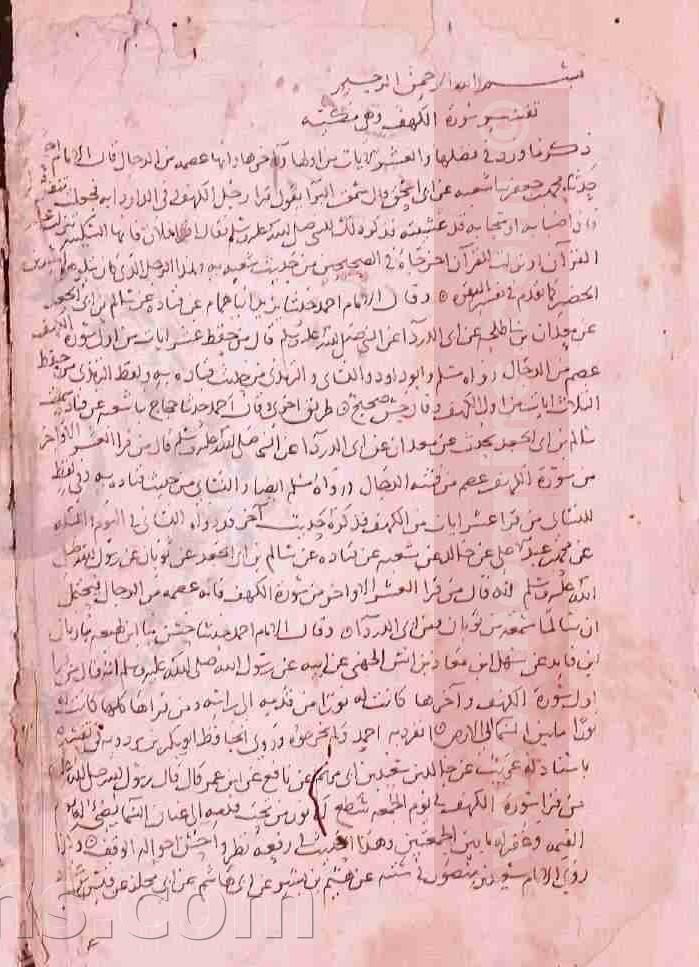 بسم الله الرحمن الرحيم
تفسير سورة الكهف وهي مكية
ذكر ما ورد في فضلها والعشر الآيات من اولها وآخرها وانها عصمة من الدجال قال الامام احمد
حدثنا محمد بن جعفر ثنا شعبة عن ابي اسحق قال سمعت البرا يقول قرا رجل الكهف وفي الدار دابة فجعلت تنفر
فنظر فاذا ضبابة او سحابة قد غشيته فذكر ذلك للنبي صلى الله عليه وسلم فقال اقرا فلان فانها السكينة نزلت عند
القرآن او تنزلت للقرآن اخرجاه في الصحيحين من حديث شعبة به وهذا الرجل الذي كان يتلوها هو اسيد بن
الحضير كما تقدم في تفسير البقرة وقال الامام احمد حدثنا يزيد انا همام عن قتادة عن سالم بن ابي الجعد
عن معدان بن ابي طلحة عن ابي الدردا عن النبي صلى الله عليه وسلم قال من حفظ عشر ايات من اول سورة الكهف
عصم من الدجال رواه مسلم وابو داود والنسائي والترمذي من حديث قتادة به ولفظ الترمذي من حفظ
الثلاث الايات من اول الكهف وقال حسن صحيح طريق اخرى وقال احمد حدثنا حجاج ثنا شعبة عن قتادة سمعت
سالم بن ابي الجعد يحدث عن معدان عن ابي الدردا عن النبي صلى الله عليه وسلم قال من قرا العشر الاواخر
من سورة الكهف عصم من فتنة الدجال ورواه مسلم ايضا والنسائي من حديث قتادة به وفي لفظ
للنسائي من قرا عشر ايات من الكهف فذكره حديث آخر قد رواه النسائي في اليوم والليلة
عن محمد بن عبد الاعلى عن خالد عن شعبة عن قتادة عن سالم بن ابي الجعد عن ثوبان عن رسول الله صلى
الله عليه وسلم انه قال من قرا العشر الاواخر من سورة الكهف فانه عصمة من الدجال فيحتمل
ان سالما سمعه من ثوبان ومن ابي الدردا وقال الامام احمد حدثنا حسن ثنا ابن لهيعة ثنا زبان
ابن فايد عن سهل ابن معاذ بن انس الجهني عن ابيه عن رسول الله صلى الله عليه وسلم انه قال من قرا
اول سورة الكهف وآخرها كانت له نورا من قدمه الى راسه ومن قراها كلها كانت له
نورا ما بين السما الى الارض انفرد به احمد ولم يخرجوه وروى الحافظ ابو بكر بن مردويه في تفسيره
باسناد له غريب عن خالد بن سعيد بن ابي مريم عن نافع عن ابن عمر قال قال رسول الله صلى الله عليه وسلم
من قرا سورة الكهف في يوم الجمعة سطع له نور من تحت قدمه الى عنان السما يضيء له يوم
القيمة وغفر له ما بين الجمعتين وهذا الحديث في رفعه نظر واحسن احواله الوقف وهكذا
روى الامام سعيد بن منصور في سننه عن هشيم بن بشير عن ابي هاشم عن ابي مجلز عن قيس بن عباد